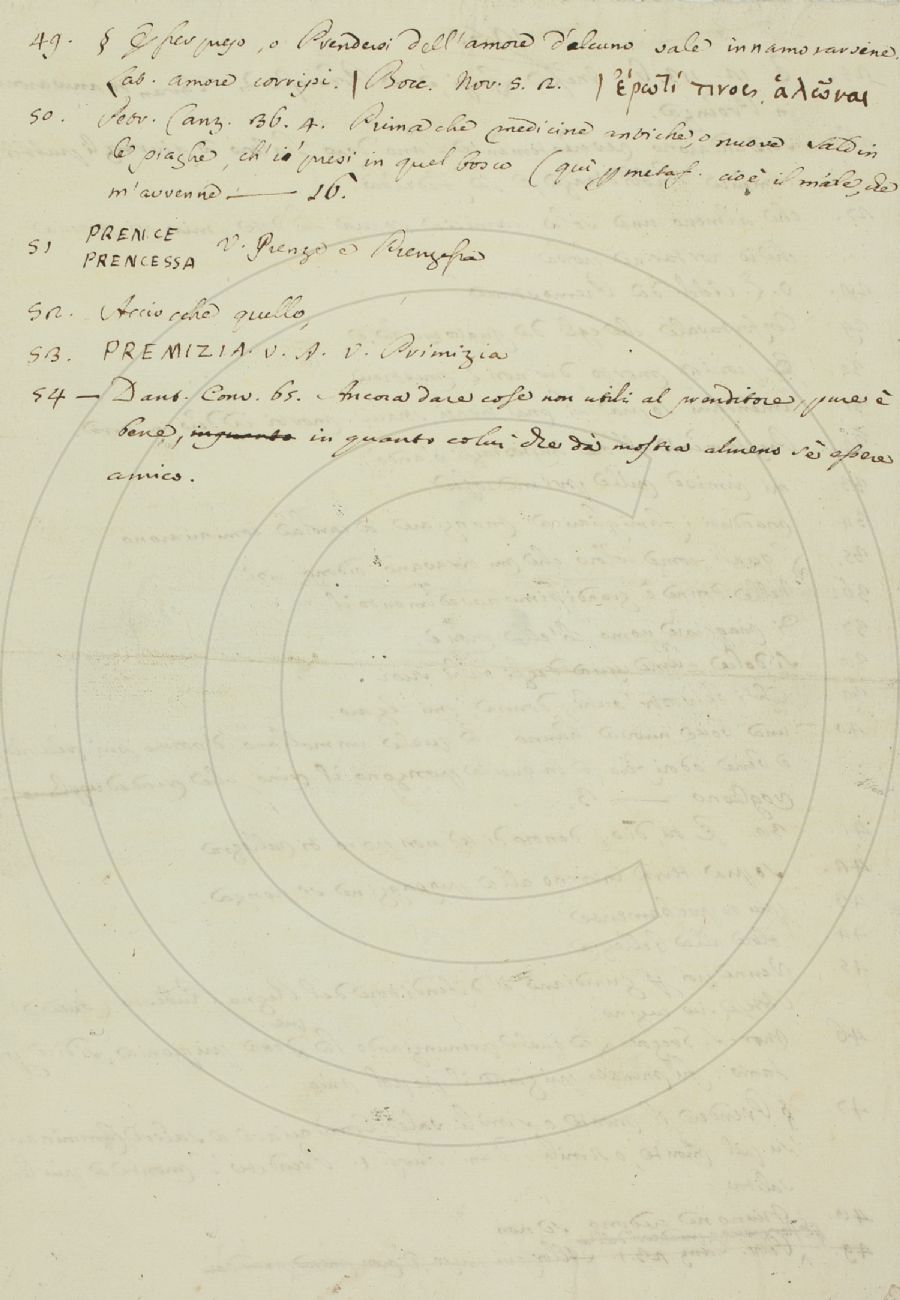 49. § Esser preso, o Prendersi dell'amore d'alcuno vale innamorarsene.
Lab. amore corripi. | Bocc. Nov. 5. 2. | Ἔρωτί τινος ἁλῶναι
50. Petr. Canz. 36. 4. Prima che medicine antiche, o nuove saldin
le piaghe, ch'io presi in quel bosco (quì p metaf. cioè il male, che
m'avvenne — 16.
51 PRENCE
PRENCESSA V. Prenze e Prenzessa
52. Acciocchè quello,
53. PREMIZIA. V. A. V. Primizia
54 — Dant. Conv. 65. Ancora dare cose non utili al prenditore, pure è
bene, inquanto in quanto colui che dà mostra almeno sè essere
amico.